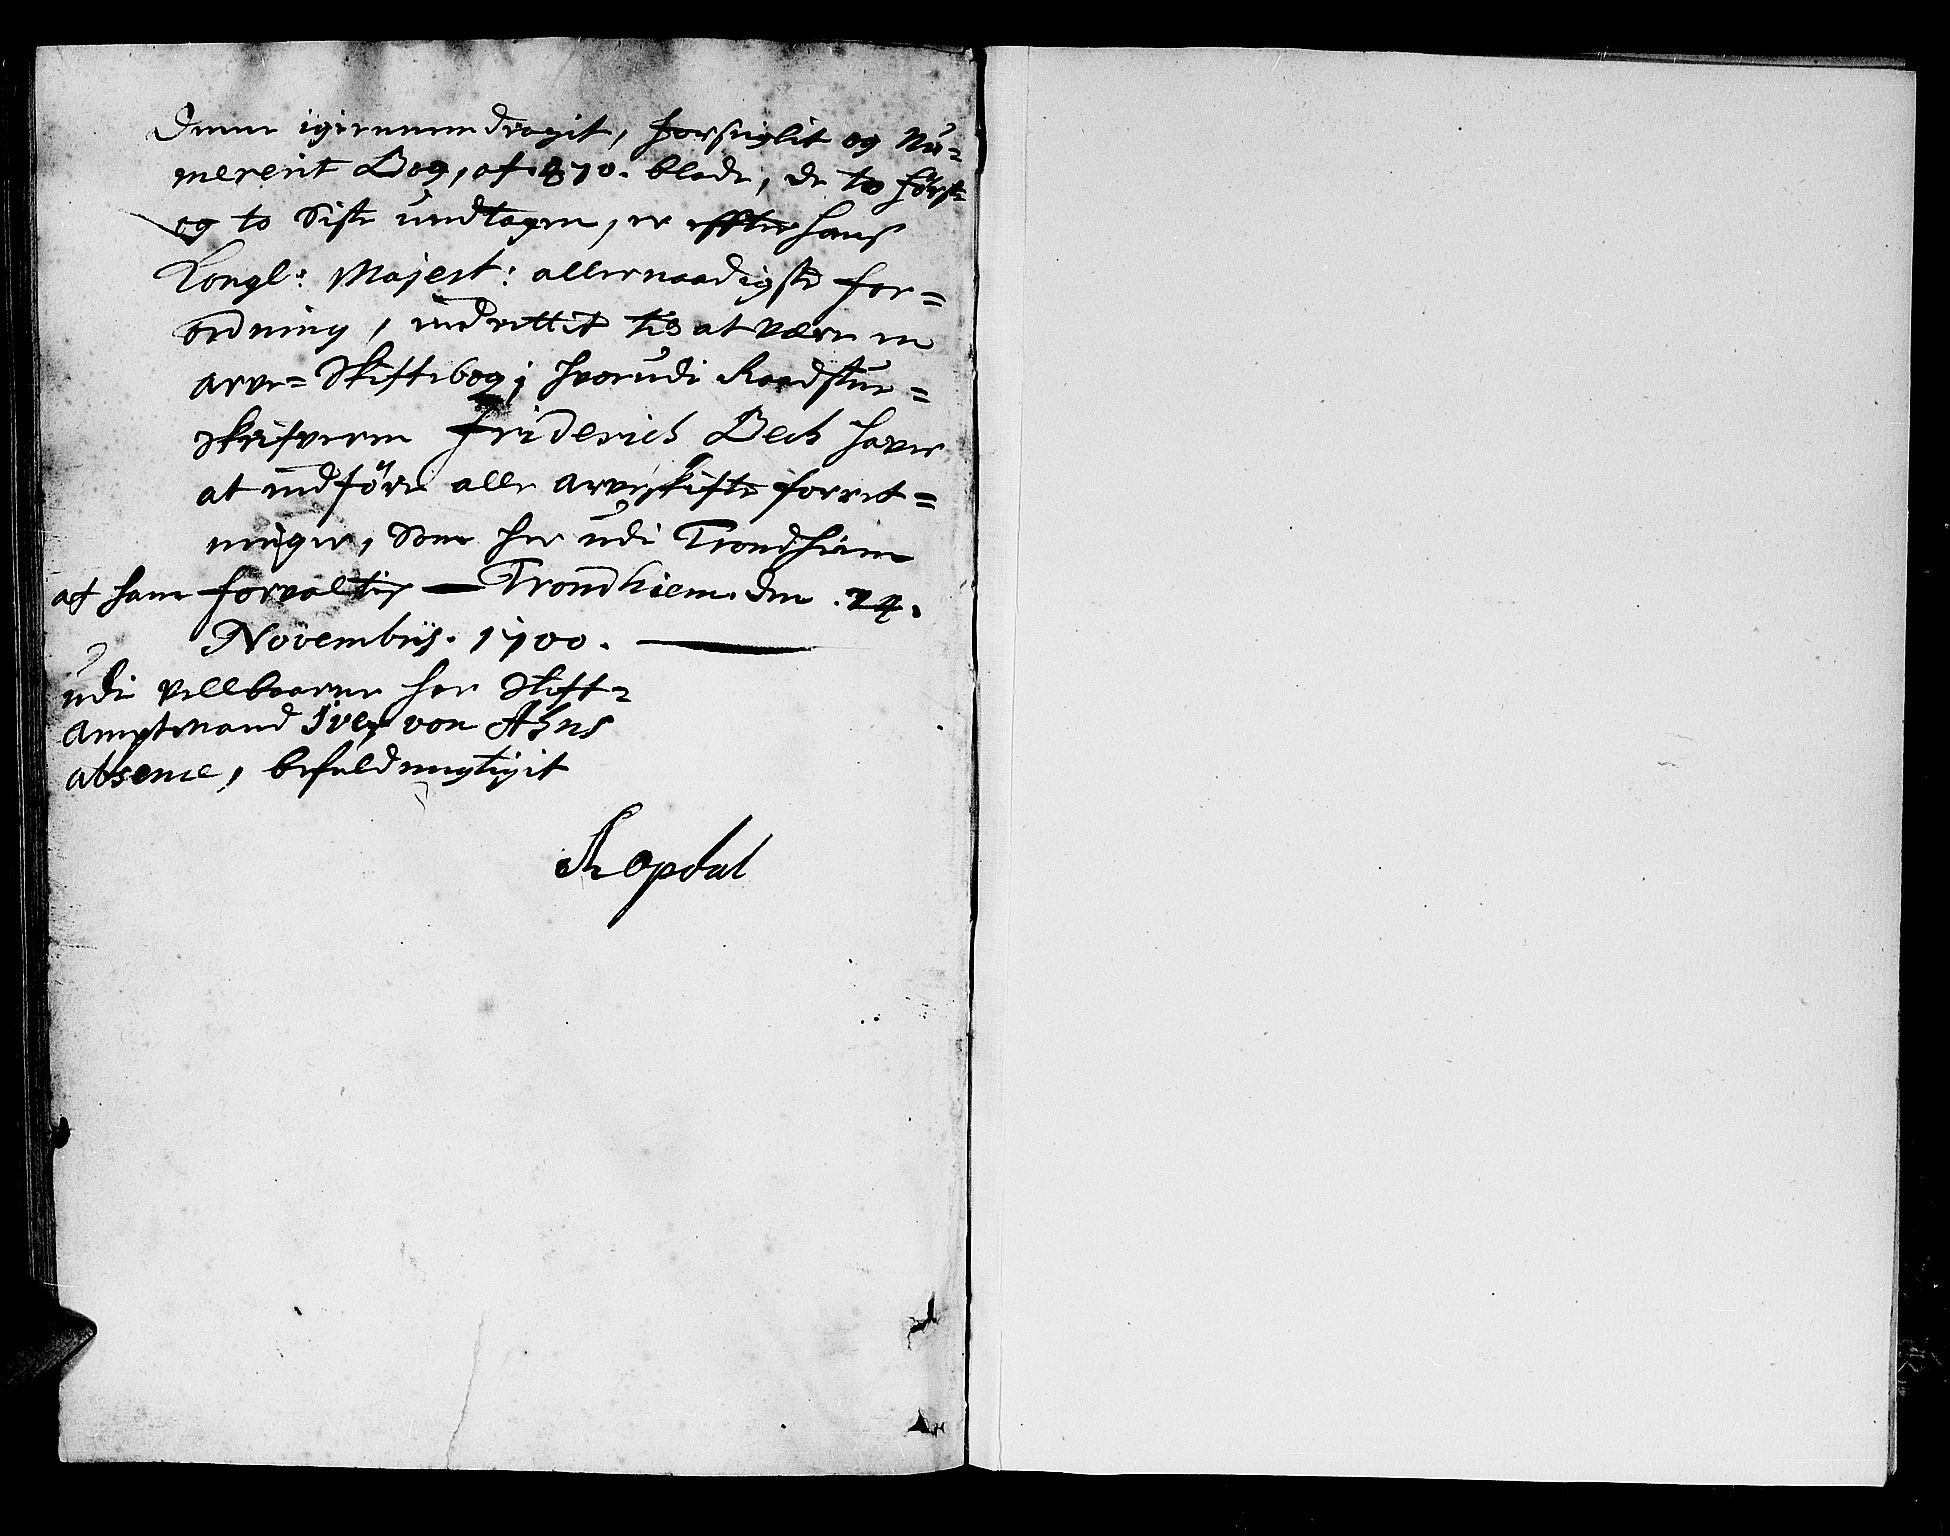 Denne igiennemdragit, forsiglit og Nu=
mererit Bog, af 870. blade, de to först
og to Siste undtagen, er effter hans
Kongl: Majest: allernaadigste for=
ordning, indrettit til at være en
arve= Skiftebog; hvorudi Raadstue=
skrifveren Friderich Bech haver
at indföre alle arveskifte forret=
ninger, Som her udi Trondhiem
af ham forvaltis — Trondhiem. den .24.
Novembris. 1700. —
udi Velbaarne her Stift=
amptmand Iver von Ahns
absence, befuldmegtigit
Ropdal